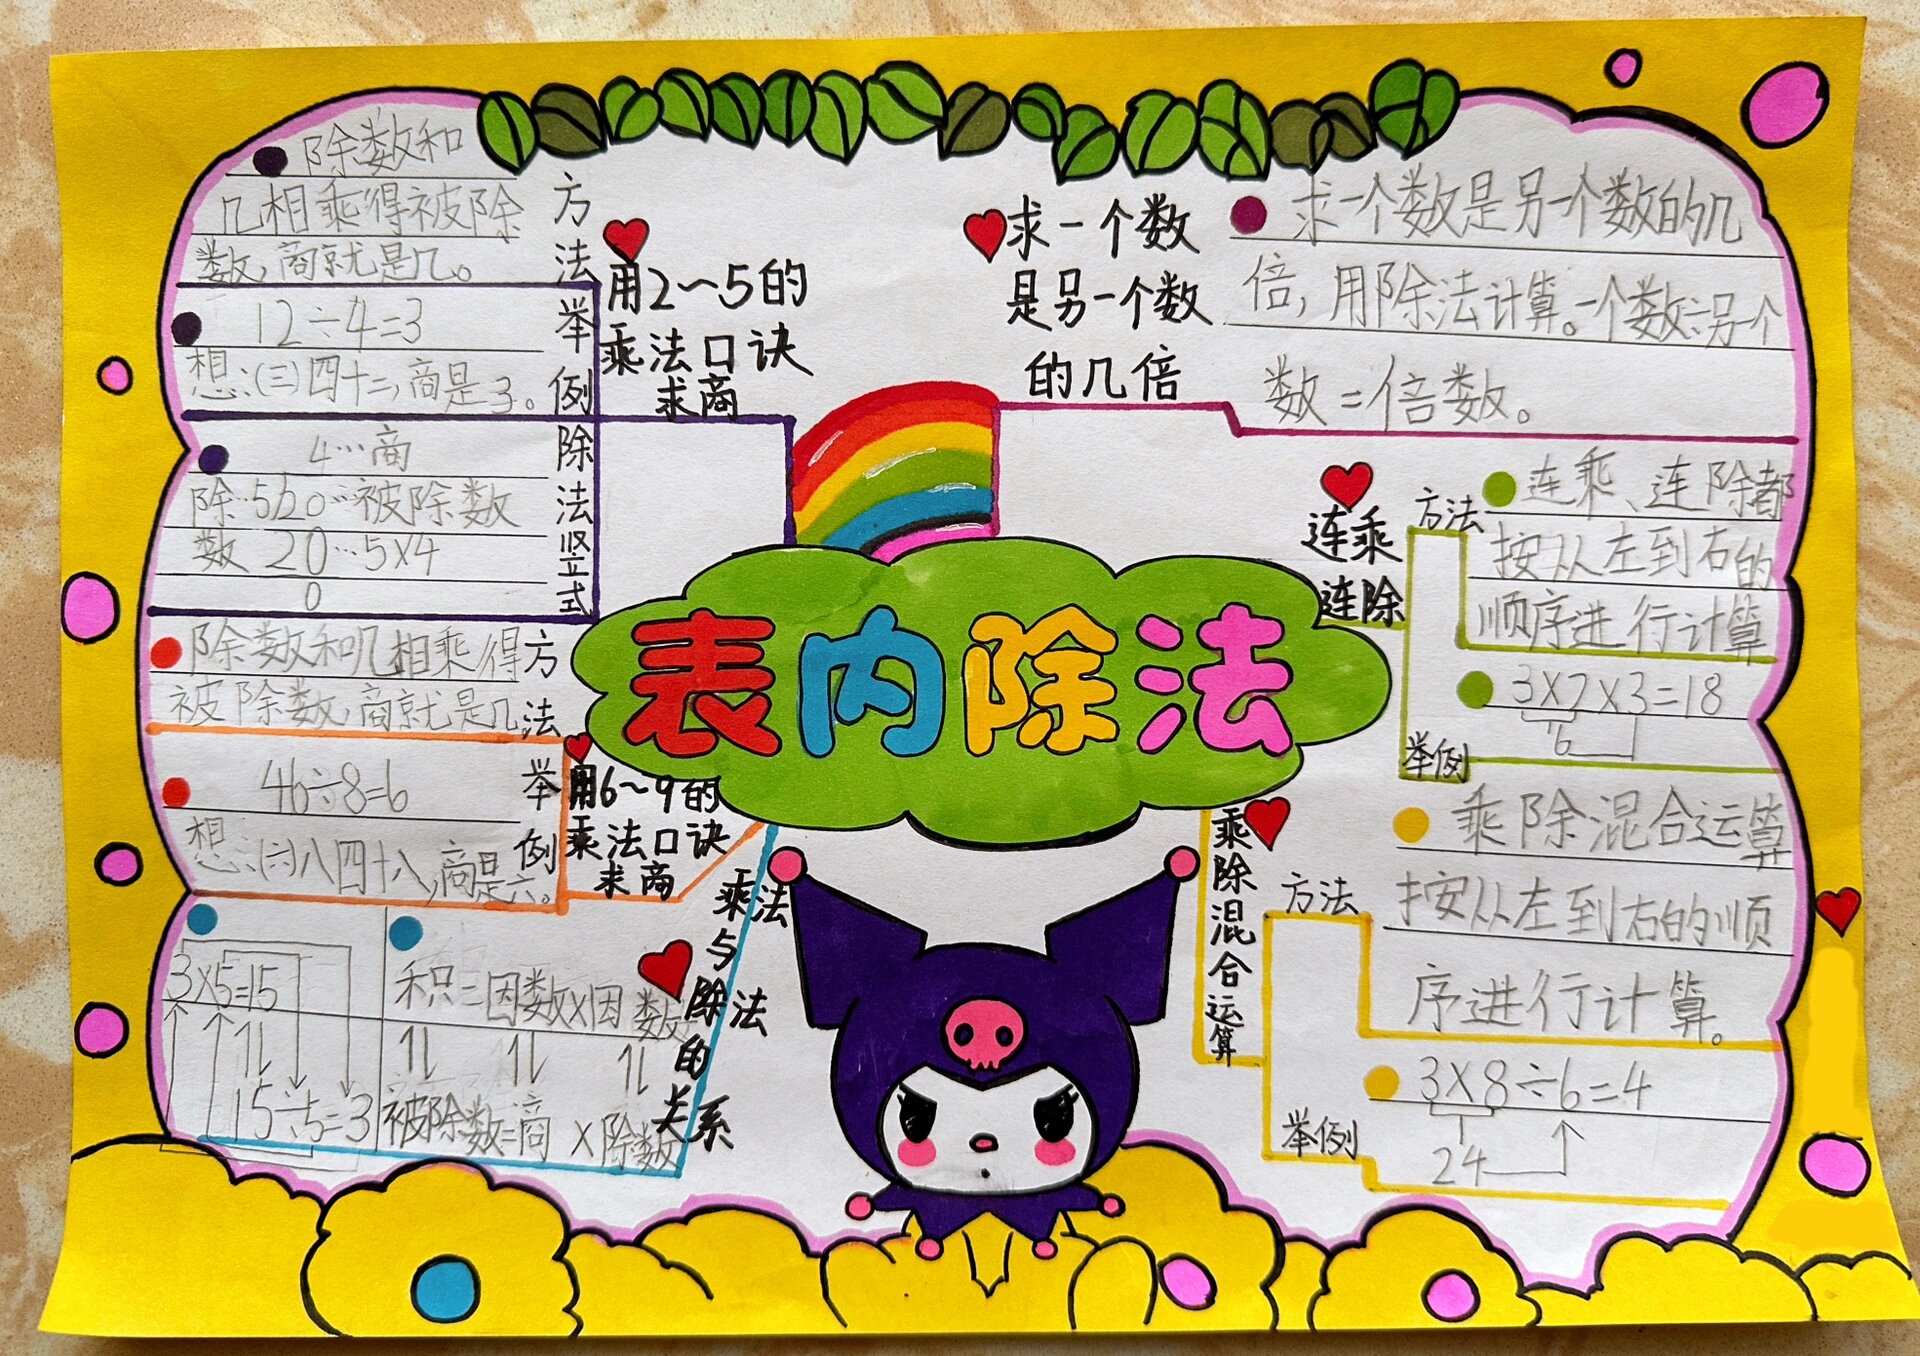 表内除法
用2～5的
乘法口诀
求商
方法
除数和
几相乘得被除
数,商就是几。
举例
12÷4=3
想:(三)四十二,商是3。
除法竖式
4…商
除…5⟌20…被除数
数 20…5×4
0
用6～9的
乘法口诀
求商
方法
除数和几相乘得
被除数,商就是几
举例
46÷8=6
想:(六)八四十八,商是六。
乘法
与
除法
的
关系
3×5=15
15÷5=3
积=因数×因数
被除数=商×除数
求一个数
是另一个数
的几倍
求一个数是另一个数的几
倍,用除法计算。一个数÷另个
数=倍数。
连乘
连除
方法
连乘、连除都
按从左到右的
顺序进行计算
举例
3×2×3=18
6
乘除混合运算
方法
乘除混合运算
按从左到右的顺
序进行计算。
举例
3×8÷6=4
24